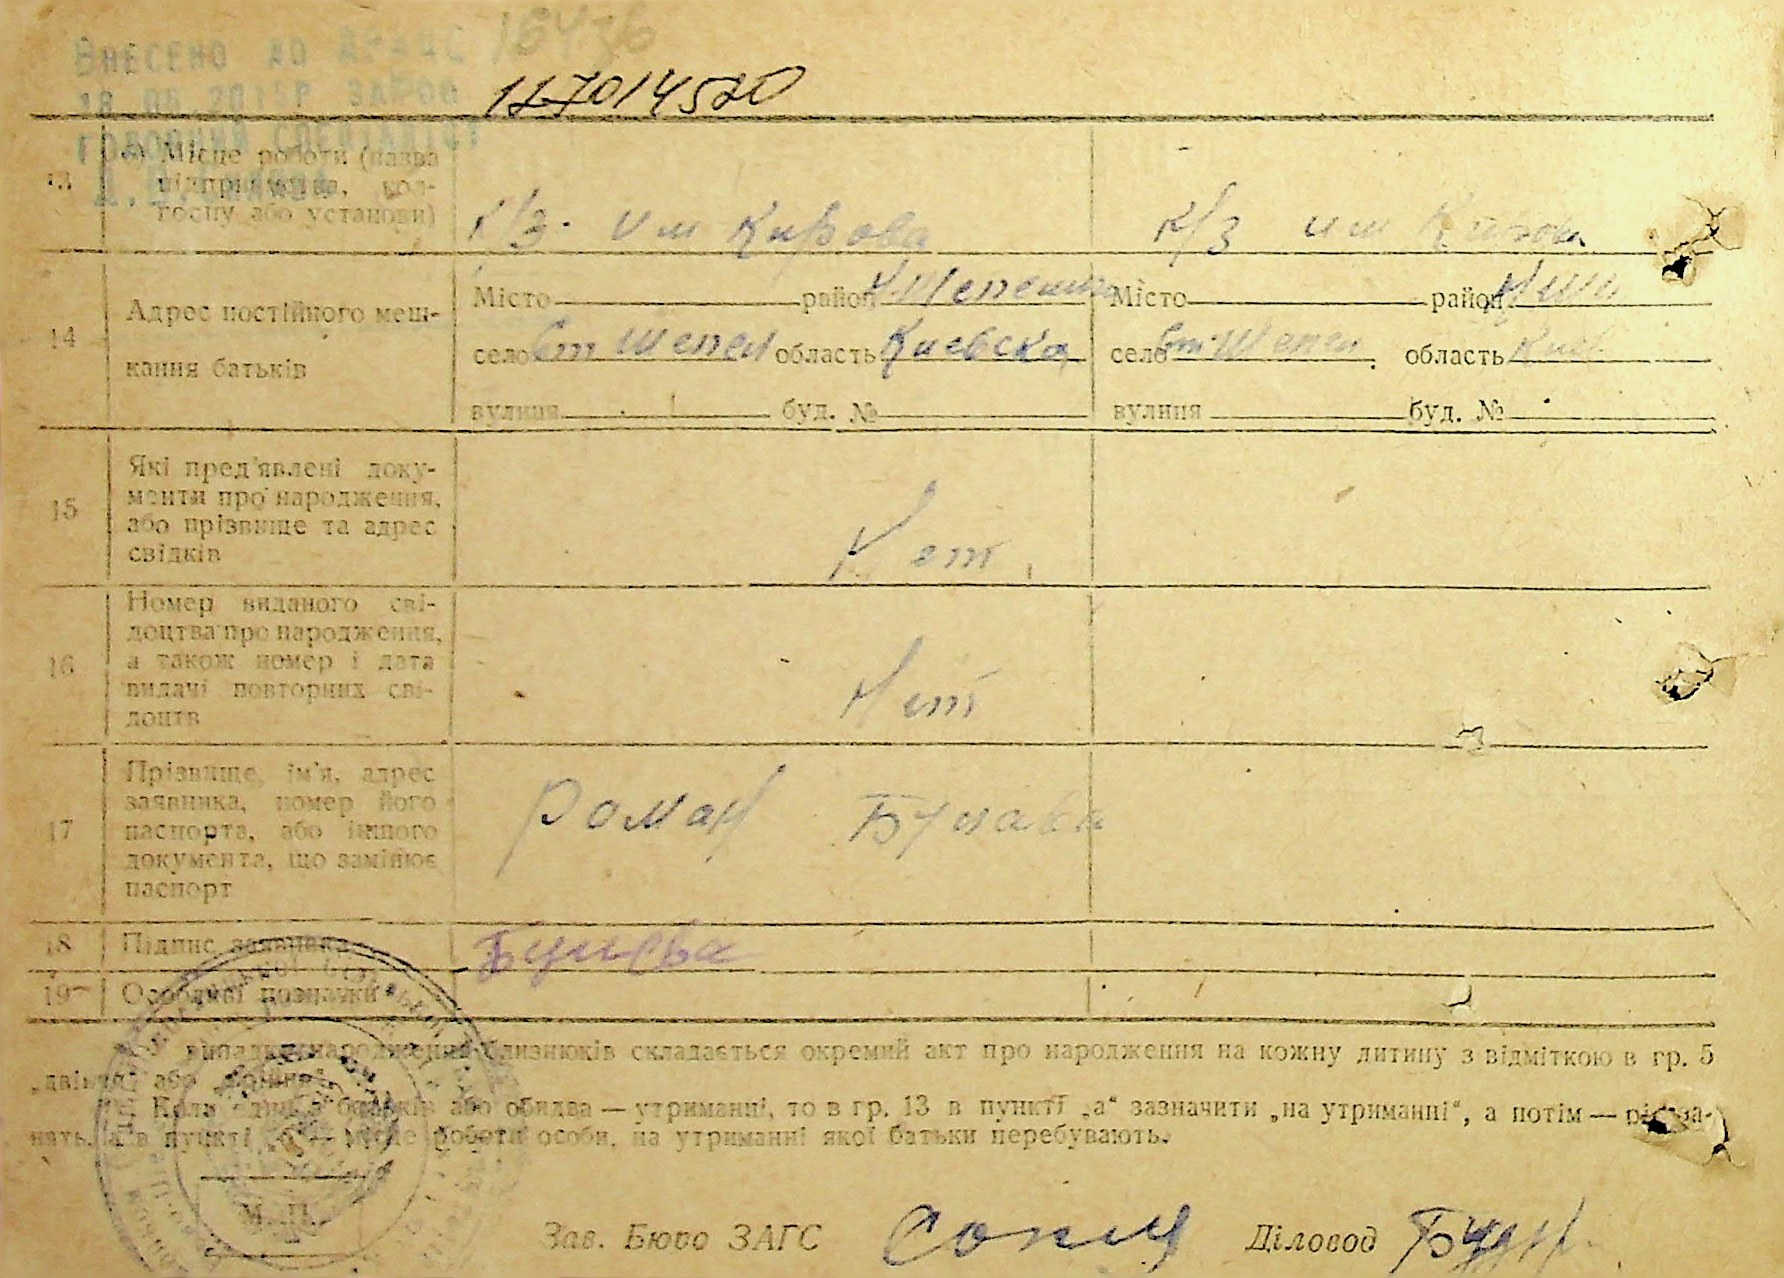 ВНЕСЕНО ДО ДРАЦС
18.06.2015Р. ЗА РОВ
ГОЛОВНИЙ СПЕЦІАЛІСТ
13 б) Місце роботи (назва
підприємства, кол-
госпу або установи)
к/з. им Кирова к/з им Кирова
14 Адрес постійного меш-
кання батьків
Місто район Місто район
село Ст Шепел область Киевска село Ст Шепел область Киев
вулиця буд. № вулиця буд. №
15 Які пред'явлені доку-
менти про народження,
або прізвище та адрес
свідків
Нет
16 Номер виданого сві-
доцтва про народження,
а також номер і дата
видачі повторних сві-
доцтв
Нет
17 Прізвище, ім'я, адрес
заявника, номер його
паспорта, або іншого
документа, що замінює
паспорт
Роман
18 Підпис заявника
19 Особливі познауки
У випадку народження близнюків складається окремий акт про народження на кожну дитину з відміткою в гр. 5
„двійня" або „трійня".
Коли один з батьків або обидва — утриманні, то в гр. 13 в пункті „а" зазначити „на утриманні", а потім —
в пункті „б" — місце роботи особи, на утриманні якої батьки перебувають.
М. П.
Зав. Бюро ЗАГС Діловод